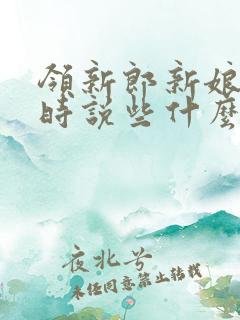 領新郎新娘
時説些什麽
夜北兮
未经同意禁止转载